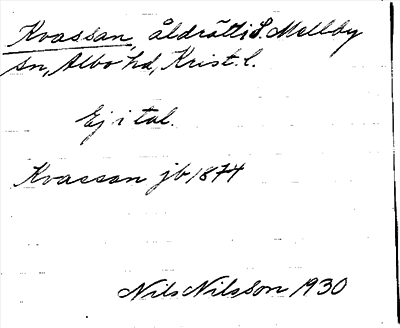 Kvassan, åldrätt i S. Mellby
sn, Albo hd, Krist. l.
Ej i tal.
Kvassan jb 1874
Nils Nilsson 1930